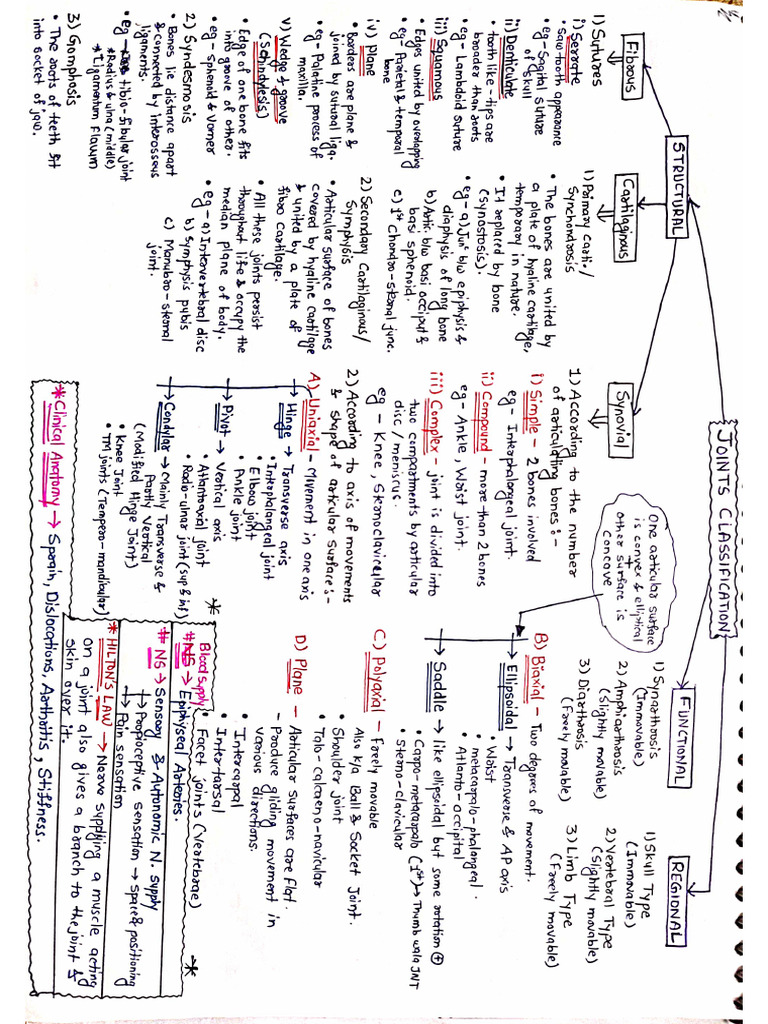 JOINTS CLASSIFICATION
STRUCTURAL
FUNCTIONAL
REGIONAL
Fibrous
Cartilaginous
Synovial
1) Sutures
i) Serrate
• Saw tooth appearance
eg - Sagital suture
of skull
ii) Denticulate
• tooth like - tips are
broader than roots
eg - Lambdoid suture
iii) Squamous
• Edges united by overlapping
eg - Parietal & temporal
bone
iv) Plane
• Borders are plane &
joined by sutural liga.
• eg - Palatine process of
maxilla.
v) Wedge & groove
(Schindylesis)
• Edge of one bone fits
into groove of other.
• eg - Sphenoid & Vomer
2) Syndesmosis
• Bones lie distance apart
& connected by interosseous
ligaments.
• eg - tibio-fibular joint
* Radius & ulna (middle)
* Ligamentum Flavum
3) Gomphosis
• The roots of teeth fit
into socket of jaw.
1) Primary carti-/
Synchondrosis
• The bones are united by
a plate of hyaline cartilage,
temporary in nature.
• It replaced by bone
(synostosis).
• eg - a) Junc b/w epiphysis &
diaphysis of long bone
b) Artic. b/w basi occiput &
basi sphenoid.
c) 1st Chondro-sternal junc.
2) Secondary Cartilaginous/
Symphysis
• Articular surface of bones
covered by hyaline cartilage
& united by a plate of
fibro cartilage.
• All these joints persist
throughout life & occupy the
median plane of body.
• eg - a) Intervertebral disc
b) Symphysis pubis
c) Manubro-sternal
joint.
1) According to the number
of articulating bones :-
i) Simple - 2 bones involved
eg - Interphalangeal joint.
ii) Compound - more than 2 bones
eg - Ankle, Waist joint.
iii) Complex - joint is divided into
two compartments by articular
disc / meniscus.
eg - Knee, Sternoclavicular
2) According to axis of movements
& shape of articular surface :-
A) Uniaxial - Movement in one axis
Hinge → Transverse axis
• Interphalangeal joint
• Elbow joint
• Ankle joint
Pivot → Vertical axis
• Atlantoaxial joint
• Radio-ulnar joint (sup & inf)
Condylar → Mainly Transverse &
(Modified Partly Vertical
Hinge Joint)
• Knee Joint
• TM joints (Temporo-mandibular)
One articular surface
is convex & elliptical
+
other surface is
concave
B) Biaxial - Two degrees of
movement.
Ellipsoidal → Transverse & AP axis
• Waist
• metacarpalo-phalangeal.
• Atlanto-occipital
Saddle → like ellipsoidal but some rotation ⊕
• Carpo-metacarpalo (1st) → Thumb wala JNT
• Sterno-clavicular
C) Polyaxial - Freely movable
Also k/a Ball & Socket Joint.
• Shoulder joint
• Talo-calcaneo-navicular
D) Plane - Articular surfaces are flat.
- Produce gliding movement in
various directions.
• Intercarpal
• Intertarsal
• Facet joints (vertebrae)
1) Synarthrosis
(Immovable)
2) Amphiarthrosis
(Slightly movable)
3) Diarthrosis
(Freely movable)
1) Skull Type
(Immovable)
2) Vertebral Type
(Slightly movable)
3) Limb Type
(Freely movable)
Blood supply
# NS → Epiphyseal Arteries.
# NS → Sensory & Autonomic N. supply
→ Proprioceptive sensation → Space & positioning
→ Pain sensation
* HILTON'S LAW → Nerve supplying a muscle acting
on a joint also gives a branch to the joint &
skin over it.
* Clinical Anatomy → Sprain, Dislocations, Arthritis, Stiffness.